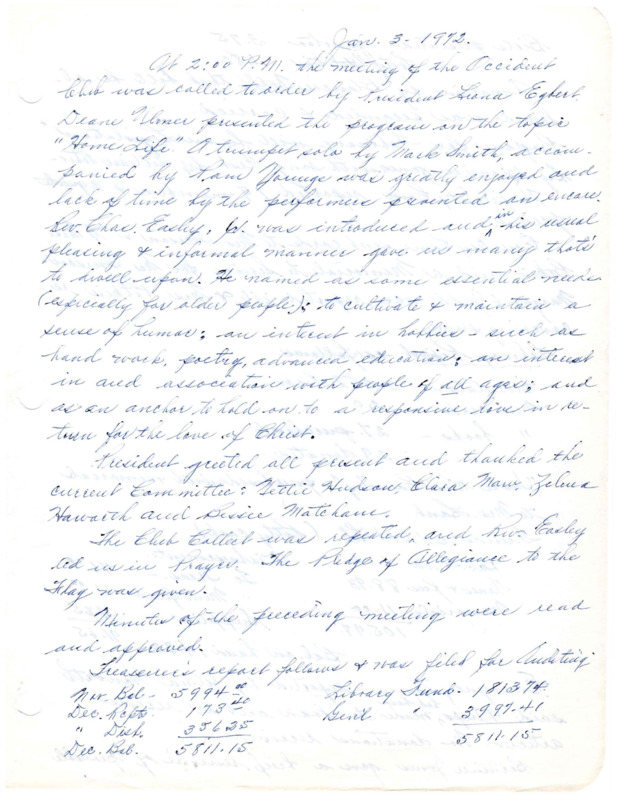 Jan. 3 - 1972.
At 2:00 P.M. the meeting of the Occident
Club was called to order by President Leona Egbert.
Deane Ulmer presented the program on the topic
"Home Life." A trumpet solo by Mark Smith, accom-
panied by Pam Younge was greatly enjoyed and
lack of time by the performers prevented an encore.
Rev. Chas. Easley, Jr. was introduced and, in his usual
pleasing & informal manner gave us many thots
to dwell upon. He named as some essential needs
(especially for older people): to cultivate & maintain a
sense of humor; an interest in hobbies - such as
hand work, poetry, advanced education; an interest
in and association with people of all ages; and
as an anchor to hold on to a responsive love in re-
turn for the love of Christ.
President greeted all present and thanked the
current Committee: Nettie Hudson, Clara Maw, Zelma
Haworth and Bessie Matcham.
The Club Collect was repeated, and Rev. Easley
led us in Prayer. The Pledge of Allegiance to the
Flag was given.
Minutes of the preceding meeting were read
and approved.
Treasurer's report follows & was filed for Auditing
Nov. Bal - 5994.00 Library Fund - 1813.74
Dec. Rcpts. 173.40 Gen'l " 3997.41
" Disb. 356.25 5811.15
Dec. Bal. 5811.15